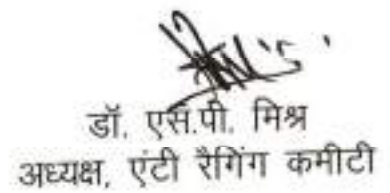 डॉ. एस.पी. मिश्र
अध्यक्ष, एंटी रैगिंग कमीटी